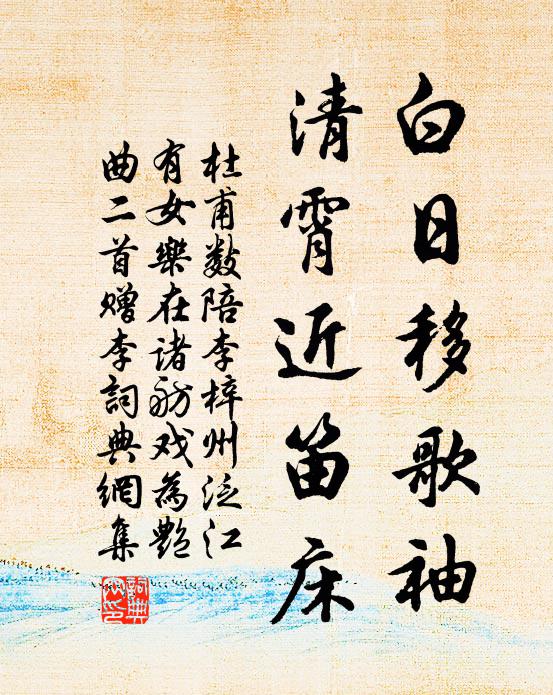 白日移歌袖
清霄近笛床
杜甫数陪李梓州泛江
有女樂在诸舫戏為艶
曲二首赠李詞典網集